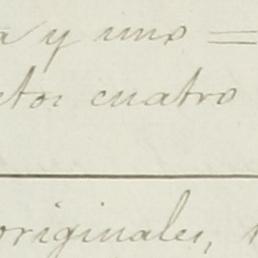 y uno =
cuatro
originales,